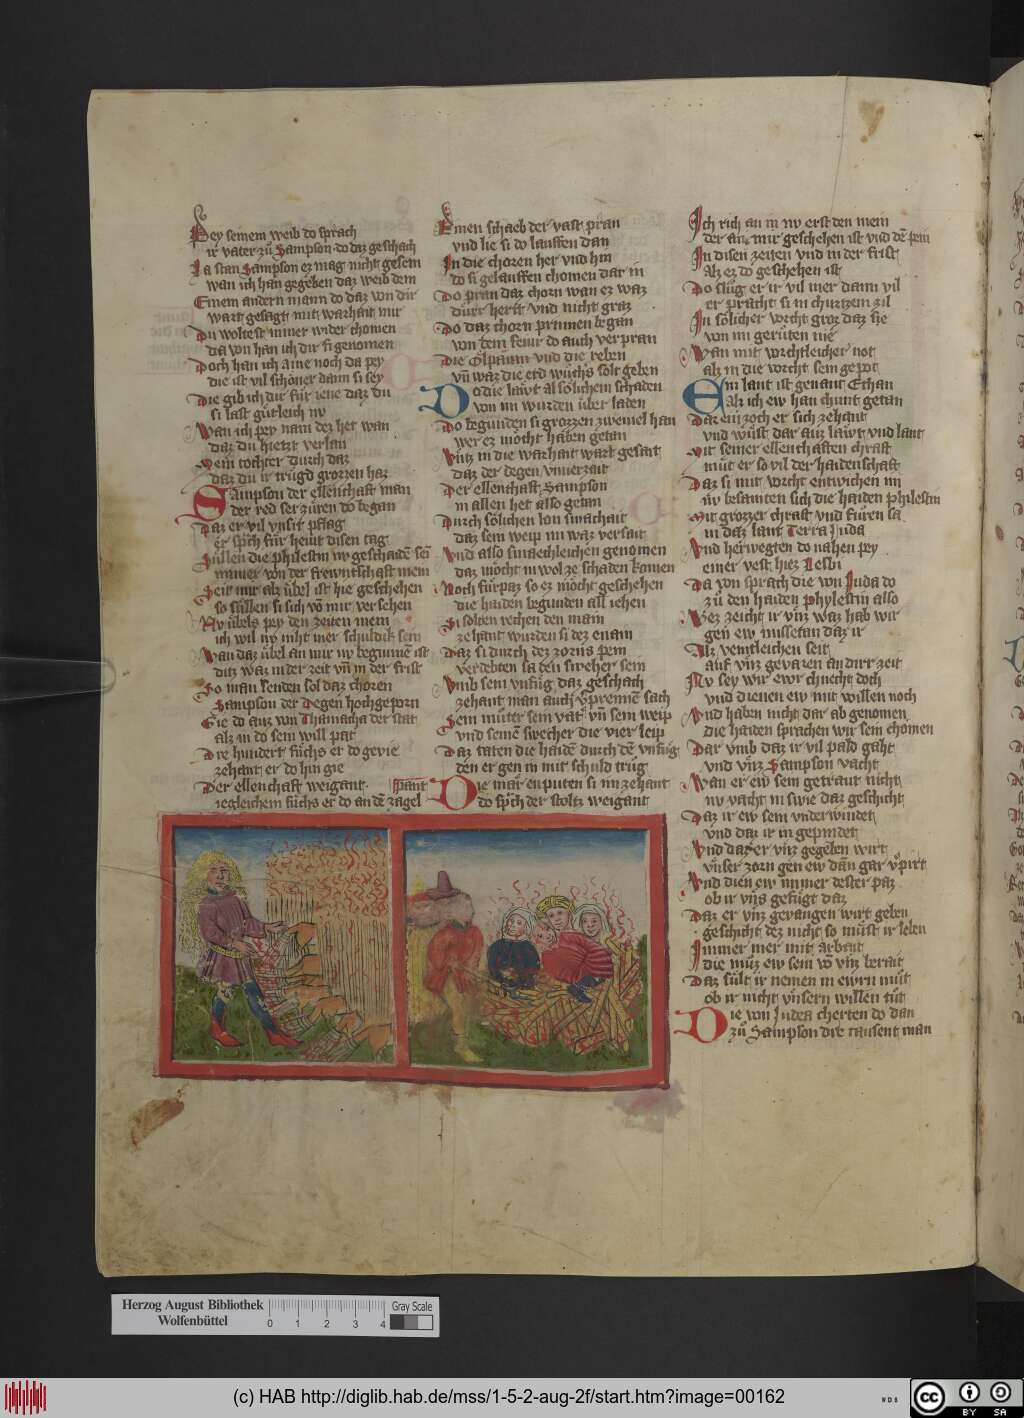 Bey seinem weib do sprach
ir vater zů Sampson do daz geschach
La stan Sampson ez mag nicht gesein
wan ich han gegeben daz weib dein
Einem andern mann do daz von dir
wart gesagt mit warhait mir
Du woltest nimer wider chomen
da von han ich dir si genomen
Doch han ich aine noch da pey
die ist vil schöner dann si sey
Die gib ich dir für iene daz du
si last gütleich nv
Wan ich pey nam dez het wan
daz du hietzt verlan
Mein tochter durch daz
daz du ir trügd grozzen haz
Sampson der ellenthaft man
der red ser zürnen do began
Daz er vil vnsit pflag
er sprach für heüt disen tag
Süllen die philestin nv geschadē sē
nimer von der frewntschaft mein
Seit mir alz übel ist hie geschehen
so süllen si sich võ mir versehen
Nv übels pey den zeiten mein
ich wil nv niht mer schuldik sein
Wan daz übel an mir nv begunnē ist
ditz waz in der zeit vñ in der frist
So man senden sol daz choren
Sampson der Degen hochgeporn
Gie do auz von Thamnatha der stat
alz in do sein will pat
Dre hundert füchs er do gevie
zehant er do hin gie
Der ellenthaft weigant
pant
iegleichem füchs er do andē zagel
Einen schaeb der vast pran
vnd lie si do lauffen dan
In die choren her vnd hin
do si gelauffen chomen dar in
Do pran daz chorn wan ez waz
dürr herst vnd nicht graz
Do daz chorn prinnen began
von dem feuir do auch verpran
Die Ölpaum vnd die reben
vñ waz die erd wüchs solt geben
Do die läwt al sölichem schaden
von im wurden über laden
Do begunden si grozzen zweiuel han
wer ez möcht haben getan
Vntz in die warhait wart gesait
daz der degen vnuerzait
Der ellenthaft Sampson
in allen het also getan
Durch sölichen lon smachait
daz sein weip im waz versait
Vnd also smaechleichen genomen
daz möcht in wol ze schaden komen
Noch fürpaz so ez möcht geschehen
die haiden begunden all iehen
Si solten rechen den main
zehant wurden si dez enain
Daz si durch dez zorns pein
verdebten sa den sweher sein
Vmb sein vnfüg daz geschach
zehant man auch vprennē sach
Sein müter sein vat vñ sein weip
vnd seinē swecher die vier leip
Daz taten die haidē durch dē vnfüg
den er gen in mit schuld trüg
Die mär enputen si im zehant
do sprach der stoltz weigant
Ich rich an in nv erst den mein
der an mir geschehen ist vnd dē pein
In disen zeiten vnd in der frist
alz ez do geschehen ist
Do slüg er ir vil mer dann vil
er pracht si in churtzem zil
In sölicher vorcht groz daz sie
von im gerüten nie
Wan mit vorchtleicher not
alz in die vorcht sein gepot
Ein lant ist genant Ethan
alz ich ew han chunt getan
Dar ein zoch er sich zehant
vnd wüst dar auz läwt vnd lant
Mit seiner ellenthaften chraft
müt er so vil der haidenschaft
Daz si mit vorcht entwichen im
nv besamten sich die haiden phylestin
Mit grozzer chraft vnd füren sa
in daz lant Terra Juda
Vnd herwegten do nahen pey
einer vest hiez Lesbi
Da von sprach die von Juda do
zü den haiden phylestin also
Wez zeicht ir vnz waz hab wir
gen ew missetan daz ir
Alz veintleichen seit
auf vnz gevaren an dirr zeit
Nv sey wir ewr chnecht doch
vnd dienen ew mit willen noch
Vnd haben nicht dar ab genomen
die haiden sprachen wir sein chomen
Dar vmb daz ir vil pald gaht
vnd vnz Sampson vacht
Wan er ew sein getraut nicht
nv vacht in swie daz geschicht
Daz ir ew sein vnderwindet
vnd daz ir in gepindet
Vnd daz er vnz gegeben wirt
vnser zorn gen ew dañ gar v̓pirt
Vnd dien ew immer dester paz
ob ir vns gefügt daz
Daz er vnz gevangen wirt geben
geschicht dez nicht so müst ir leben
Immer mer mit arbait
die müz ew sein võ vnz berait
Daz sült ir nemen in ewrn müt
ob ir nicht vnsern willen tüt
Die von Judea cherten do dan
zů Sampson dre tausent man
Herzog August Bibliothek
Wolfenbüttel
0 1 2 3 4
Gray Scale
(c) HAB http://diglib.hab.de/mss/1-5-2-aug-2f/start.htm?image=00162
WDB
cc
BY SA